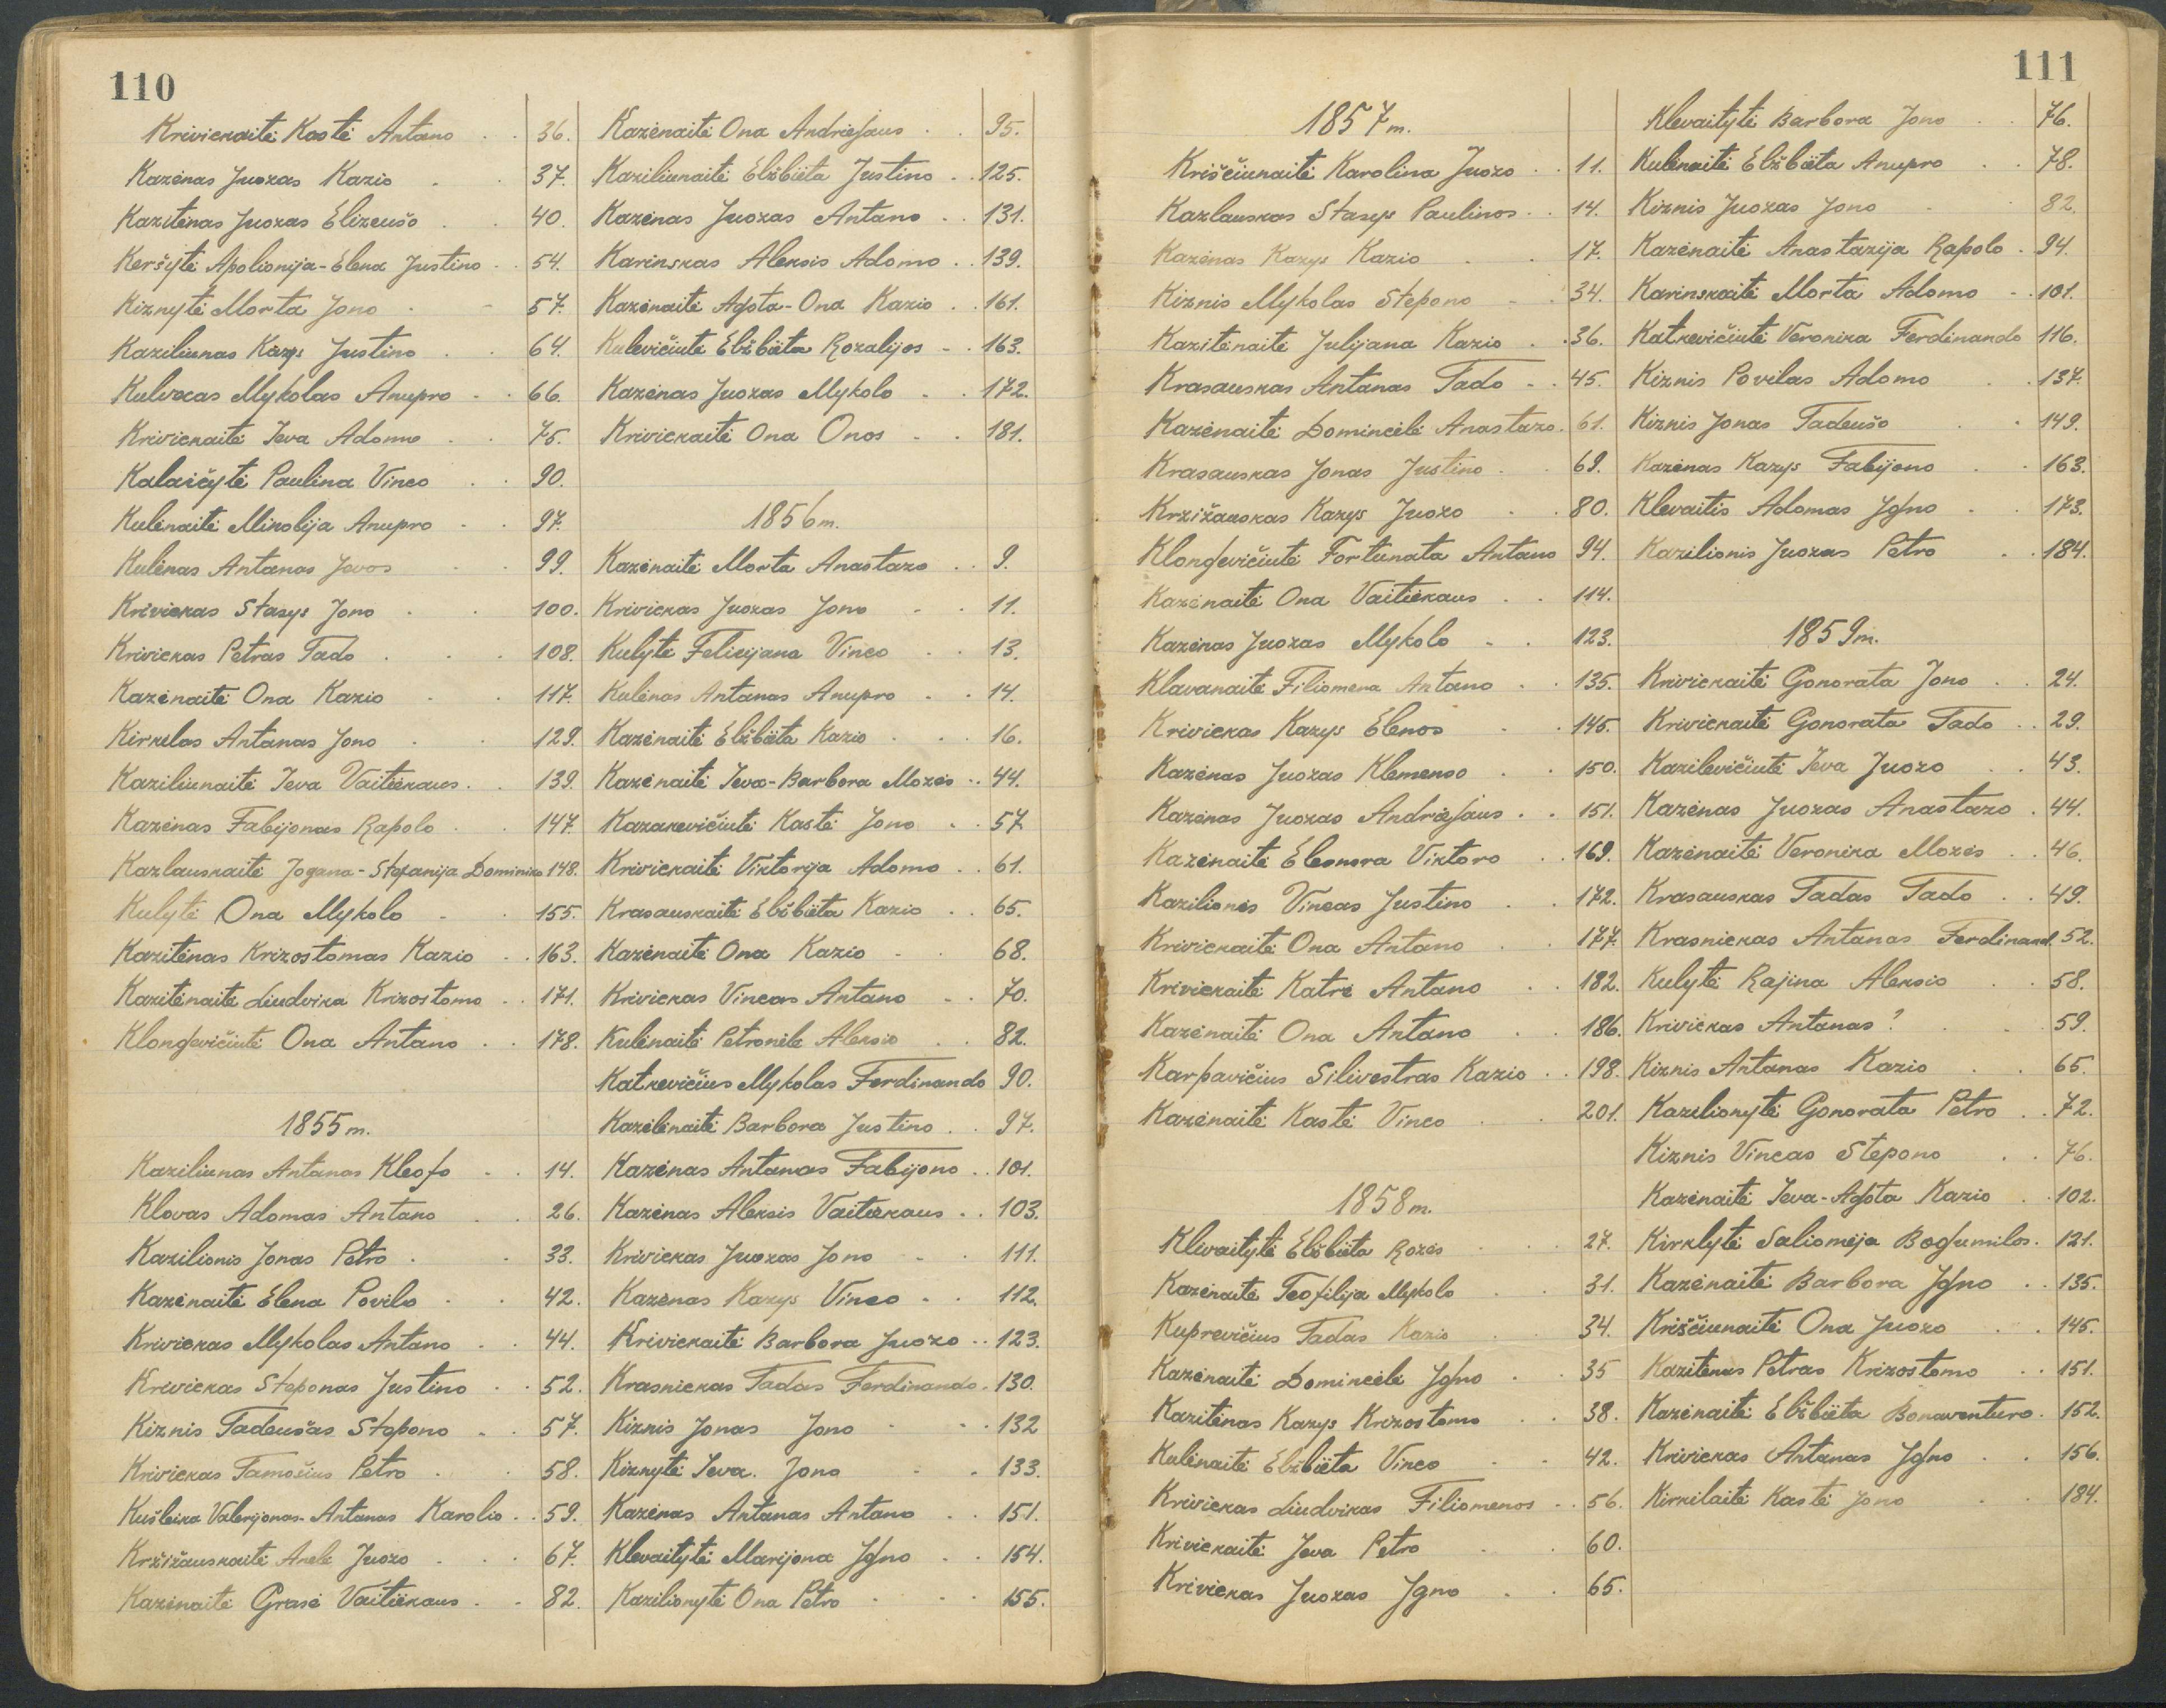 110
Krivickaitė Kastė Antano 36.
Kazėnas Juozas Kazio 37.
Kazitėnas Juozas Elizeušo 40.
Keršytė Apolionija-Elena Justino 54.
Kiznytė Morta Jono 57.
Kaziliunas Kazys Justino 64.
Kulvocas Mykolas Anupro 66.
Krivickaitė Ieva Adomo 75.
Kalaičytė Paulina Vinco 90.
Kulėnaitė Mikolija Anupro 97.
Kulėnas Antanas Jevos 99.
Krivickas Stasys Jono 100.
Krivickas Petras Tado 108.
Kazėnaitė Ona Kazio 117.
Kirkelas Antanas Jono 129.
Kaziliunaitė Ieva Vaitiekaus 139.
Kazėnas Fabijonas Rapolo 147.
Kazlauskaitė Jogana-Stefanija Dominiko 148.
Kulytė Ona Mykolo 155.
Kazitėnas Krizostomas Kazio 163.
Kazitėnaitė Liudvika Krizostomo 171.
Klongevičiutė Ona Antano 178.
1855 m.
Kaziliunas Antanas Kleofo 14.
Klovas Adomas Antano 26.
Kazilionis Jonas Petro 33.
Kazėnaitė Elena Povilo 42.
Krivickas Mykolas Antano 44.
Krivickas Steponas Justino 52.
Kiznis Tadeušas Stepono 57.
Krivickas Tamošius Petro 58.
Kušleika Valerijonas-Antanas Karolio 59.
Kržižauskaitė Anelė Juozo 67.
Kazėnaitė Grasė Vaitiekaus 82.
Kazėnaitė Ona Andriejaus 95.
Kaziliunaitė Elžbieta Justino 125.
Kazėnas Juozas Antano 131.
Karinskas Aleksis Adomo 139.
Kazėnaitė Agota-Ona Kazio 161.
Kulevičiutė Elžbieta Rozalijos 163.
Kazėnas Juozas Mykolo 172.
Krivickaitė Ona Onos 181.
1856 m.
Kazėnaitė Morta Anastazo 9.
Krivickas Juozas Jono 11.
Kulytė Felicijana Vinco 13.
Kulėnas Antanas Anupro 14.
Kazėnaitė Elžbieta Kazio 16.
Kazėnaitė Ieva-Barbora Mozės 44.
Kazakevičiutė Kastė Jono 57
Krivickaitė Viktorija Adomo 61.
Krasauskaitė Elžbieta Kazio 65.
Kazėnaitė Ona Kazio 68.
Krivickas Vincas Antano 70.
Kulėnaitė Petronėlė Aleksio 82.
Katkevičius Mykolas Ferdinando 90.
Kazilėnaitė Barbora Justino 97.
Kazėnas Antanas Fabijono 101.
Kazėnas Aleksis Vaitiekaus 103.
Krivickas Juozas Jono 111.
Kazėnas Kazys Vinco 112.
Krivickaitė Barbora Juozo 123.
Krasnickas Tadas Ferdinando 130.
Kiznis Jonas Jono 132
Kiznytė Ieva Jono 133.
Kazėnas Antanas Antano 151.
Klevaitytė Marijona Igno 154.
Kazilionytė Ona Petro 155.
111
1857 m.
Kriščiunaitė Karolina Juozo 11.
Kazlauskas Stasys Paulinos 14.
Kazėnas Kazys Kazio 17.
Kiznis Mykolas Stepono 34.
Kazitėnaitė Julijana Kazio 36.
Krasauskas Antanas Tado 45.
Kazėnaitė Domincėlė Anastazo 61.
Krasauskas Jonas Justino 69.
Krzižauskas Kazys Juozo 80.
Klongevičiutė Fortunata Antano 94.
Kazėnaitė Ona Vaitiekaus 114.
Kazėnas Juozas Mykolo 123.
Klavanaitė Filiomena Antano 135.
Krivickas Kazys Elenos 145.
Kazėnas Juozas Klemenso 150.
Kazėnas Juozas Andriejaus 151.
Kazėnaitė Eleonora Viktoro 169.
Kazilionis Vincas Justino 172.
Krivickaitė Ona Antano 177.
Krivickaitė Katrė Antano 182.
Kazėnaitė Ona Antano 186.
Karpavičius Silivestras Kazio 198.
Kazėnaitė Kastė Vinco 201.
1858 m.
Klivaitytė Elžbieta Rozės 27.
Kazėnaitė Teofilija Mykolo 31.
Kuprevičius Tadas Kazio 34.
Kazėnaitė Domincėlė Igno 35
Kazitėnas Kazys Krizostomo 38.
Kulėnaitė Elžbieta Vinco 42.
Krivickas Liudvikas Filiomenos 56.
Krivickaitė Jeva Petro 60.
Krivickas Juozas Igno 65.
Klevaitytė Barbora Jono 76.
Kulėnaitė Elžbieta Anupro 78.
Kiznis Juozas Jono 82.
Kazėnaitė Anastazija Rapolo 94.
Karinskaitė Morta Adomo 101.
Katkevičiutė Veronika Ferdinando 116.
Kiznis Povilas Adomo 137.
Kiznis Jonas Tadeušo 149.
Kazėnas Kazys Fabijono 163.
Klevaitis Adomas Igno 173.
Kazilionis Juozas Petro 184.
1859 m.
Krivickaitė Gonorata Jono 24.
Krivickaitė Gonorata Tado 29.
Kazilevičiutė Ieva Juozo 43.
Kazėnas Juozas Anastazo 44.
Kazėnaitė Veronika Mozės 46.
Krasauskas Tadas Tado 49.
Krasnickas Antanas Ferdinand. 52.
Kulytė Rajina Aleksio 58.
Krivickas Antanas ? 59.
Kiznis Antanas Kazio 65.
Kazilionytė Gonorata Petro 72.
Kiznis Vincas Stepono 76.
Kazėnaitė Ieva-Agota Kazio 102.
Kirklytė Saliomėja Bogumilos 121.
Kazėnaitė Barbora Igno 135.
Kriščiunaitė Ona Juozo 145.
Kazitėnas Petras Krizostomo 151.
Kazėnaitė Elžbieta Bonaventuro 152.
Krivickas Antanas Igno 156.
Kirkilaitė Kastė Jono 184.